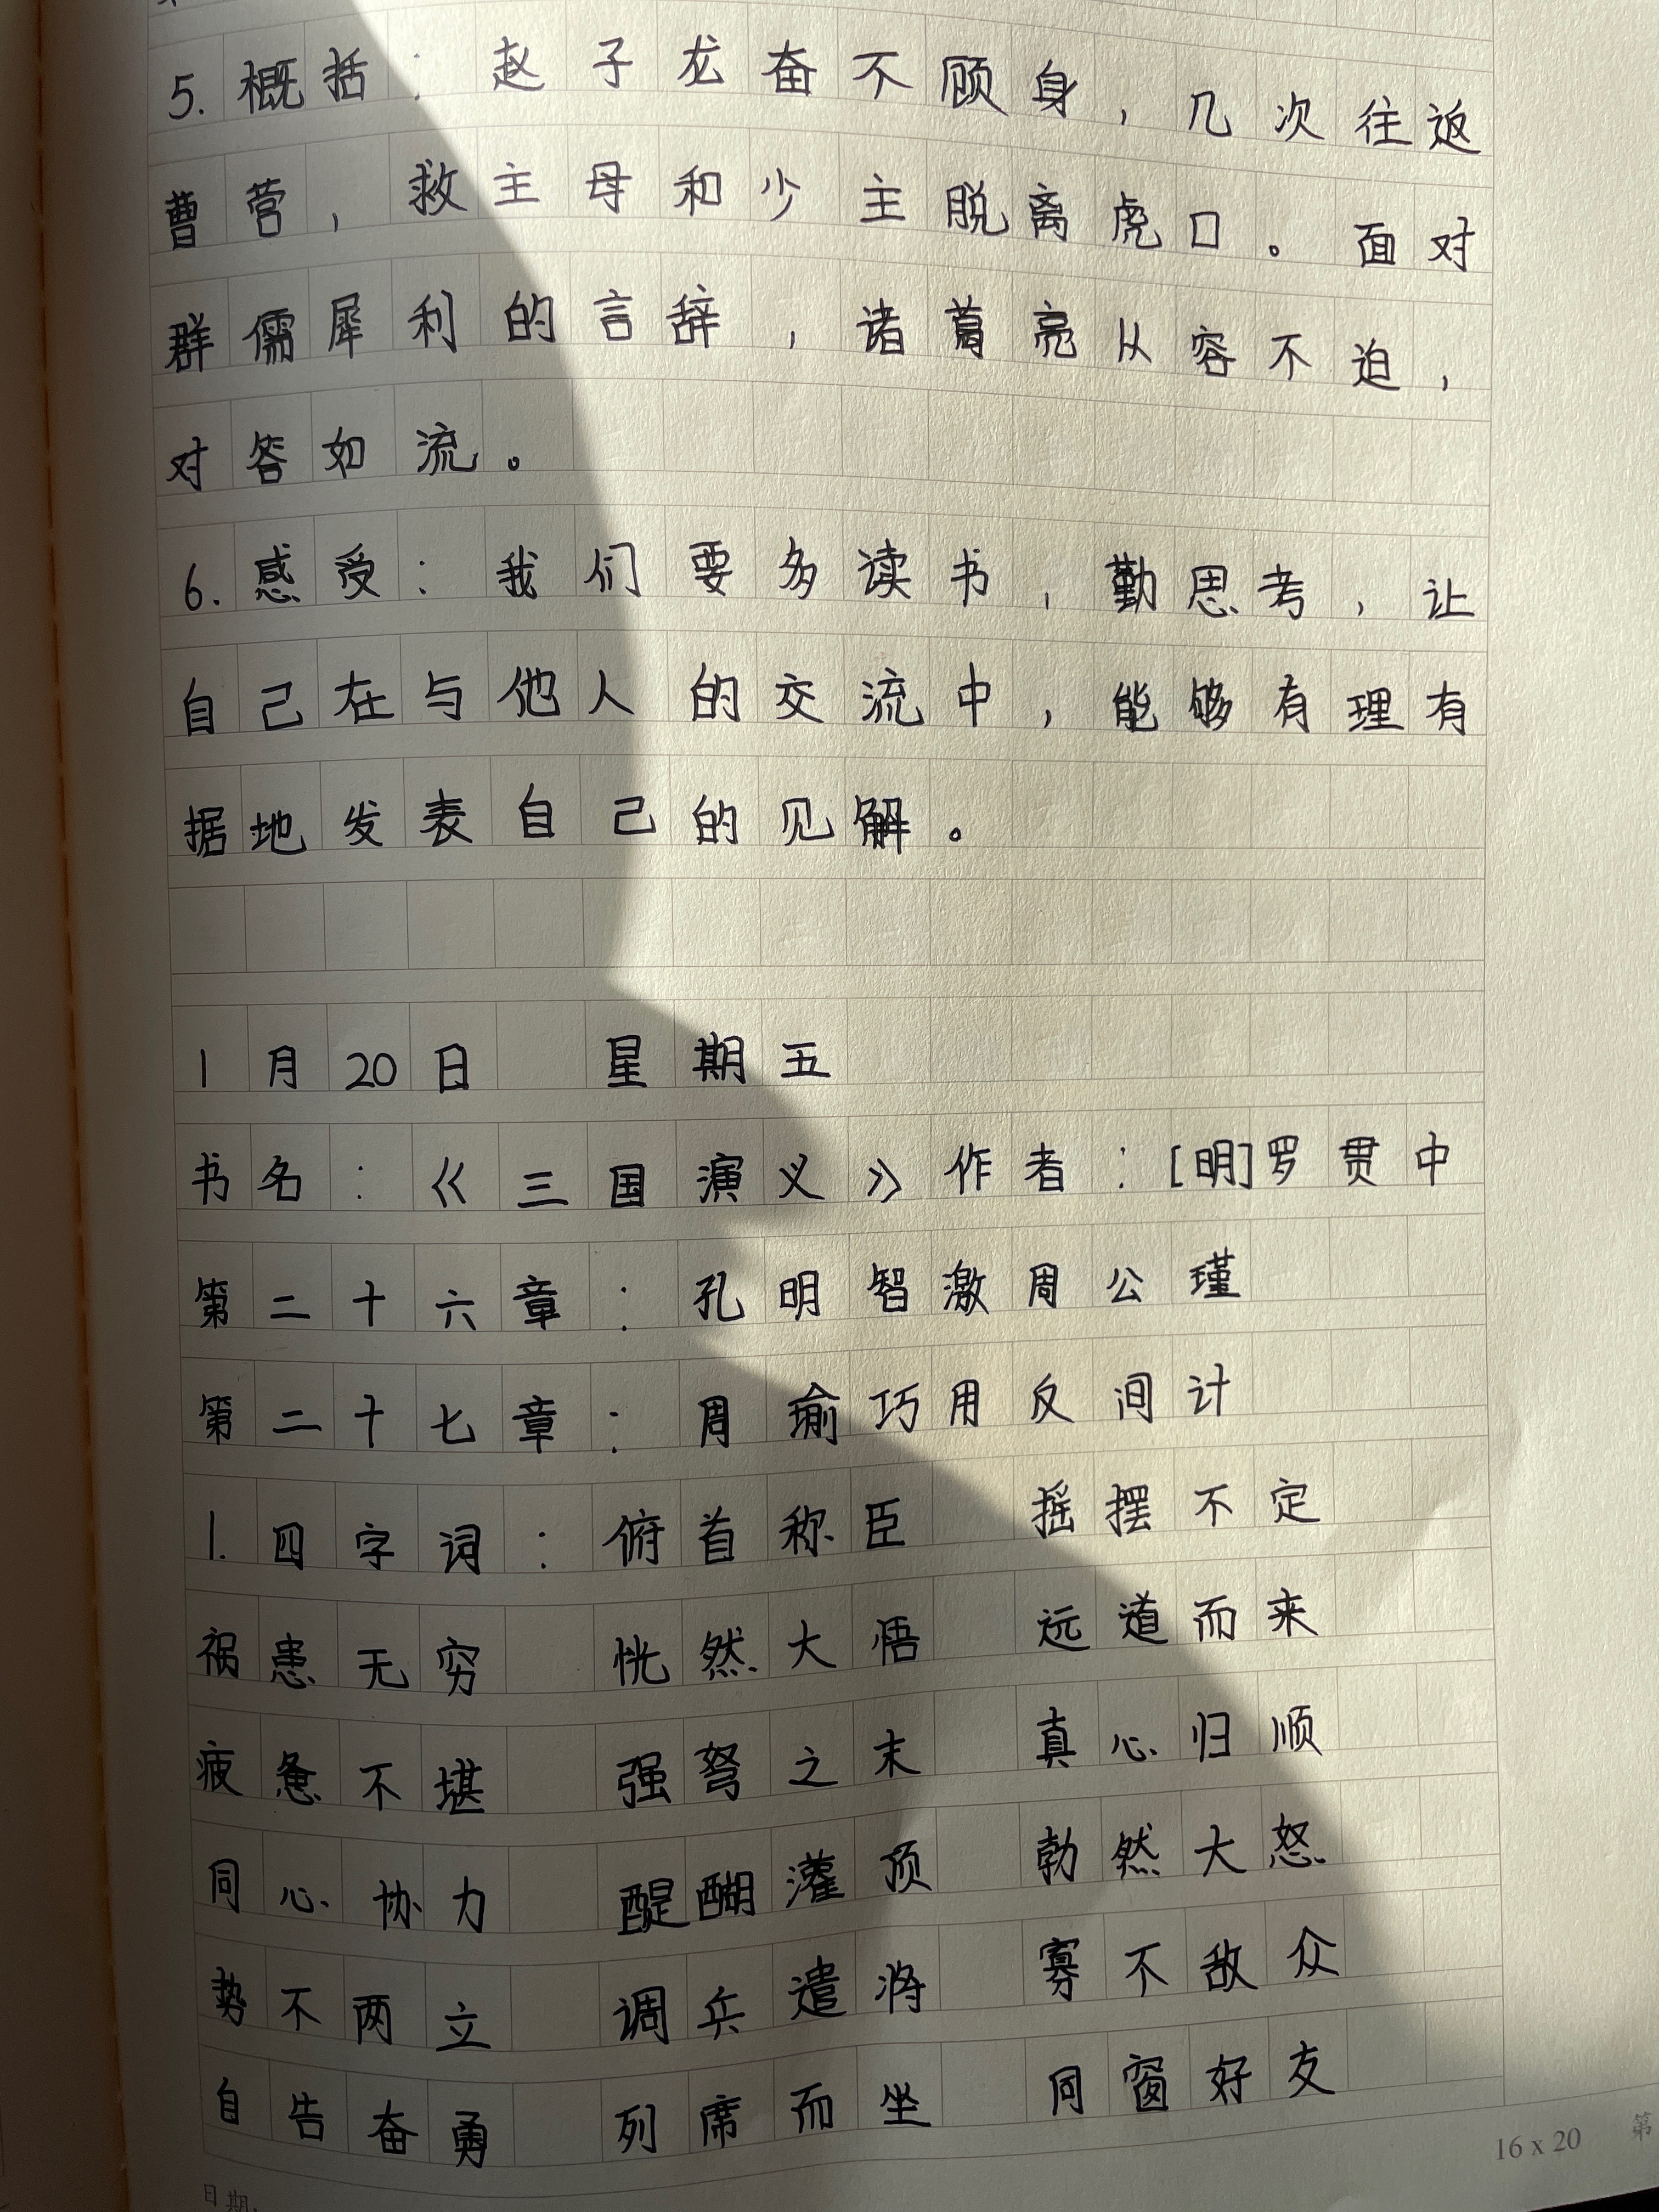 5.概括：赵子龙奋不顾身，几次往返
曹营，救主母和少主脱离虎口。面对
群儒犀利的言辞，诸葛亮从容不迫，
对答如流。
6.感受：我们要多读书，勤思考，让
自己在与他人的交流中，能够有理有
据地发表自己的见解。
1月20日 星期五
书名：《三国演义》作者：[明]罗贯中
第二十六章：孔明智激周公瑾
第二十七章：周瑜巧用反间计
1.四字词：俯首称臣 摇摆不定
祸患无穷 恍然大悟 远道而来
疲惫不堪 强弩之末 真心归顺
同心协力 醍醐灌顶 勃然大怒
势不两立 调兵遣将 寡不敌众
自告奋勇 列席而坐 同窗好友
16 x 20 第
日期.